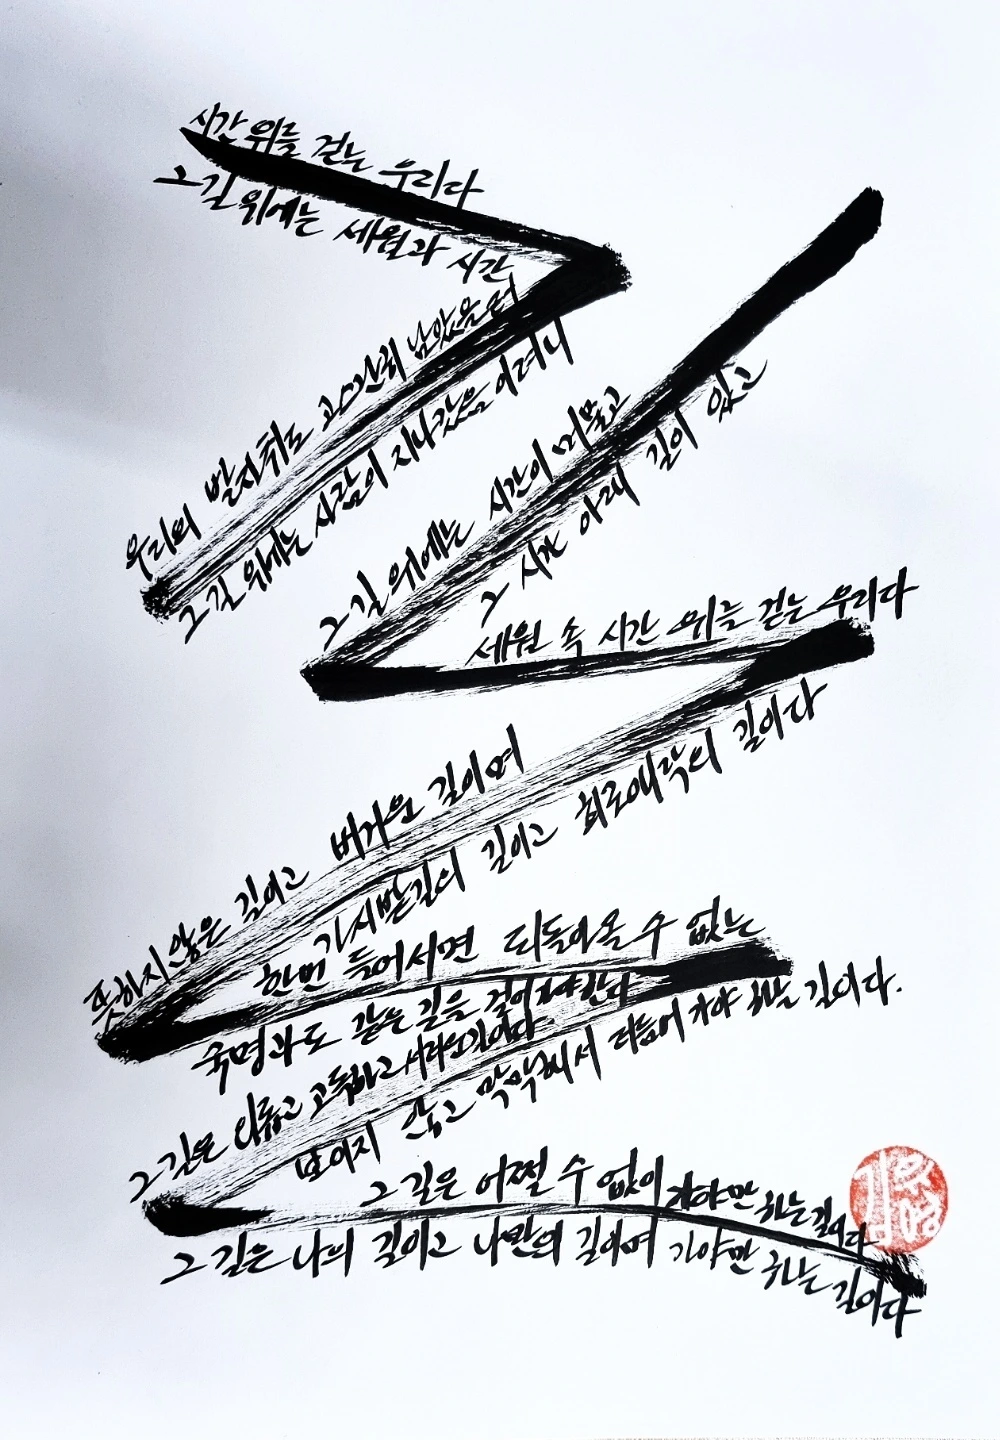 시간 위를 걷는 우리다
그 길 위에는 세월과 시간
우리의 발자취도 고스란히 남았을 터
그 길 위에는 사람이 지나갔음이려니
그 길 위에는 시간이 머물고
그 시간 아래 길이 있고
세월 속 시간 위를 걷는 우리다
편하지 않은 길이고 버거운 길이며
가시밭길의 길이고 희로애락의 길이다
한번 들어서면 되돌아올 수 없는
숙명과도 같은 길을 걸어가야한다
그 길은 외롭고 고독하고 서러운길이다.
보이지 않고 막막해서 더듬어 가야 하는 길이다.
그 길은 어쩔 수 없이 가야만 하는 길이다
그 길은 나의 길이고 나만의 길이며 가야만 하는 길이다